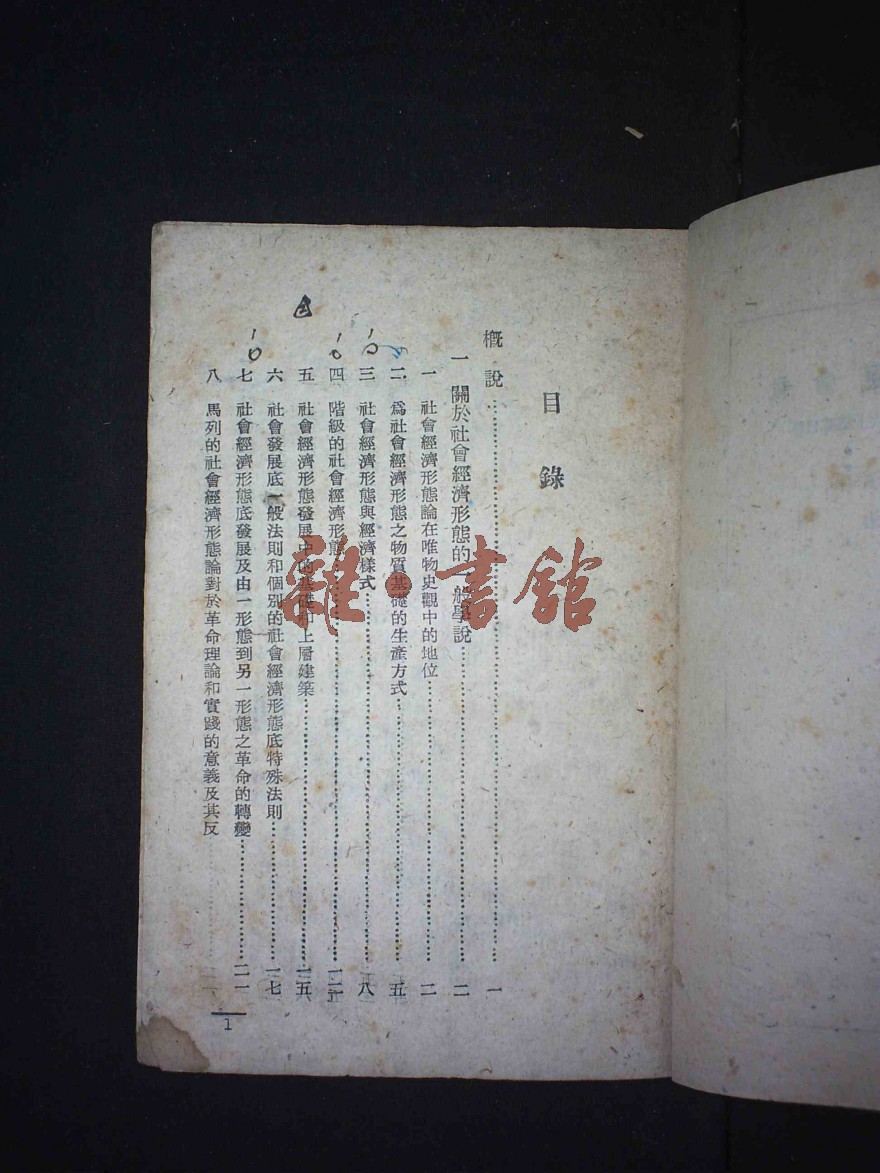 目錄
概說……一
一 關於社會經濟形態的一般學說……二
一 社會經濟形態論在唯物史觀中的地位……二
二 爲社會經濟形態之物質基礎的生產方式……五
三 社會經濟形態與經濟樣式……八
四 階級的社會經濟形態……一二
五 社會經濟形態發展中的基礎和上層建築……一五
六 社會發展底一般法則和個別的社會經濟形態底特殊法則……一七
七 社會經濟形態底發展及由一形態到另一形態之革命的轉變……二一
八 馬列的社會經濟形態論對於革命理論和實踐的意義及其反
1
雜·書館